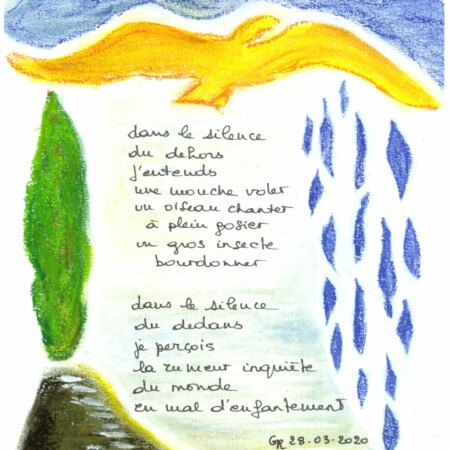 dans le silence
du dehors
j'entends
une mouche voler
un oiseau chanter
à plein gosier
un gros insecte
bourdonner
dans le silence
du dedans
je perçois
la rumeur inquiète
du monde
en mal d'enfantement
GR 28.03.2020